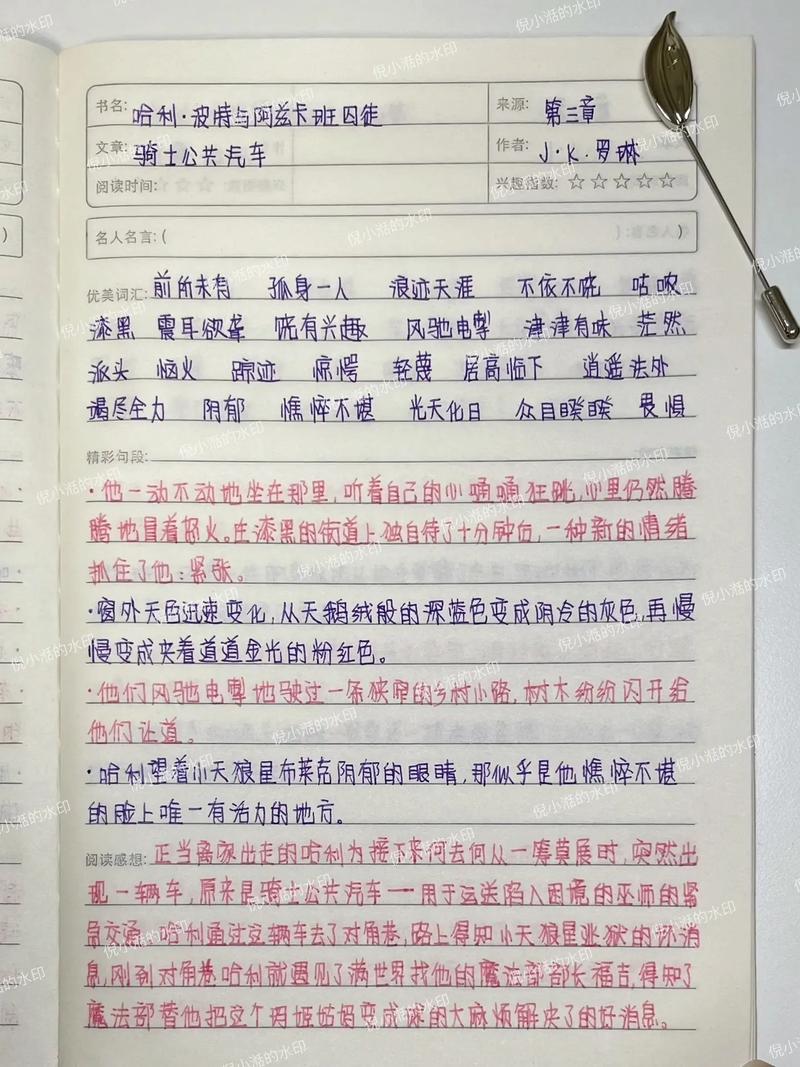 书名: 哈利·波特与阿兹卡班囚徒
来源: 第三章
文章: 骑士公共汽车
作者: J·K·罗琳
阅读时间:
兴趣指数: ☆☆☆☆☆
名人名言: ( )
优美词汇: 前所未有 孤身一人 浪迹天涯 不依不饶 咕哝
漆黑 震耳欲聋 饶有兴趣 风驰电掣 津津有味 茫然
派头 恼火 踪迹 惊愕 轻蔑 居高临下 逍遥法外
竭尽全力 阴郁 憔悴不堪 光天化日 众目睽睽 畏惧
精彩句段:
·他一动不动地坐在那里,听着自己的心嗵嗵狂跳,心里仍然腾
腾地冒着怒火。在漆黑的街道上独自待了十分钟后,一种新的情绪
抓住了他:紧张。
·窗外天色迅速变化,从天鹅绒般的深蓝色变成阴冷的灰色,再慢
慢变成夹着道道金光的粉红色。
·他们风驰电掣地驶过一条狭窄的乡村小路,树木纷纷闪开给
他们让道。
·哈利望着小天狼星布莱克阴郁的眼睛,那似乎是他憔悴不堪
的脸上唯一有活力的地方。
阅读感想: 正当离家出走的哈利为接下来何去何从一筹莫展时,突然出
现一辆车,原来是骑士公共汽车——用于运送陷入困境的巫师的紧
急交通,哈利通过这辆车去了对角巷,路上得知小天狼星逃狱的坏消
息,刚到对角巷哈利就遇见了满世界找他的魔法部部长福吉,得知了
魔法部替他把这个玛姬姑妈变成球的大麻烦解决了的好消息。
倪小湉的水印